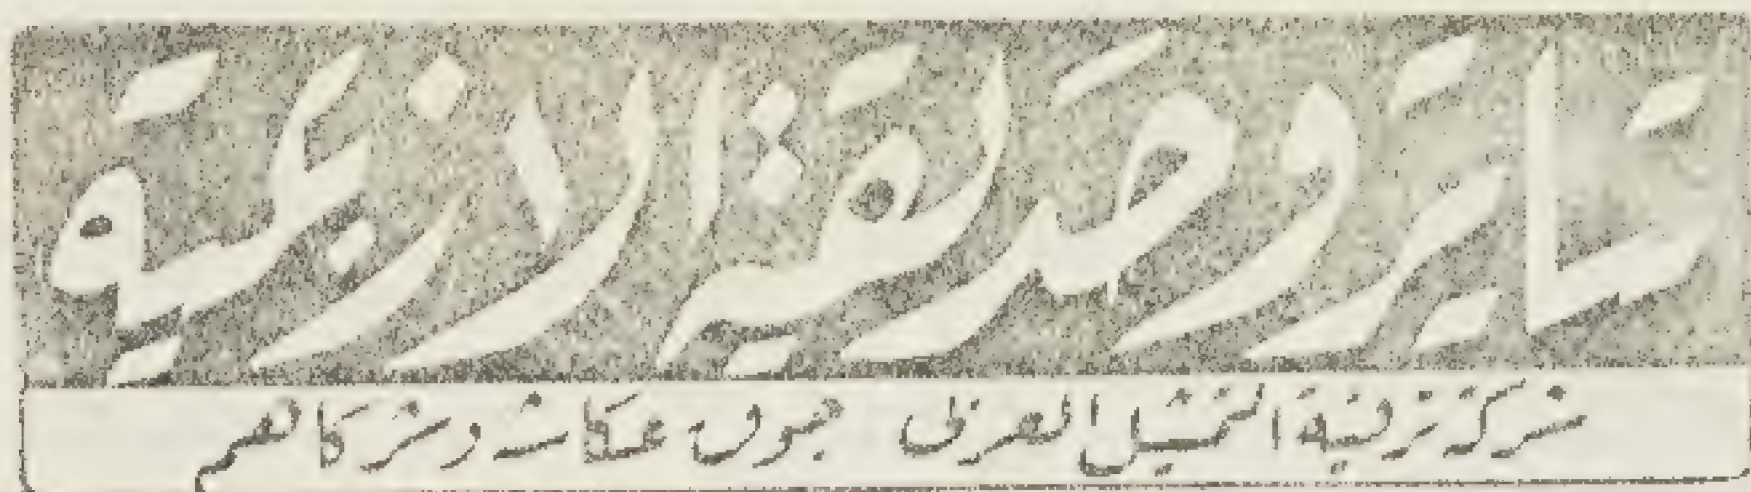 تياترو حديقة الازبكية
شركة ترقية التمثيل العربى جوق عكاشه وشركاهم